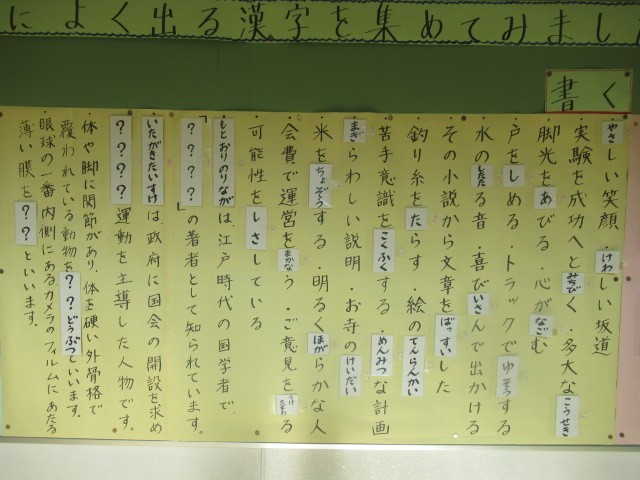 によく出る漢字を集めてみまし
書く
・やさしい笑顔・けわしい坂道
・実験を成功へとみちびく・多大なこうせき
・脚光をあびる・心がなごむ
・戸をしめる・トラックでゆそうする
・水のしたたる音・喜びいさんで出かける
・その小説から文章をばっすいした
・釣り糸をたらす・絵のてんらんかい
・苦手意識をこくふくする・めんみつな計画
・まぎらわしい説明・お寺のけいだい
・米をちょぞうする・明るくほがらかな人
・会費で運営をまかなう・ご意見をうけたまわる
・可能性をしさしている
・もとおりのりながは、江戸時代の国学者で、
「????」の著者として知られています。
・いたがきたいすけは、政府に国会の開設を求め
????運動を主導した人物です。
・体や脚に関節があり、体を硬い外骨格で
覆われている動物を??どうぶつといいます。
・眼球の一番内側にあるカメラのフィルムにあたる
薄い膜を??といいます。